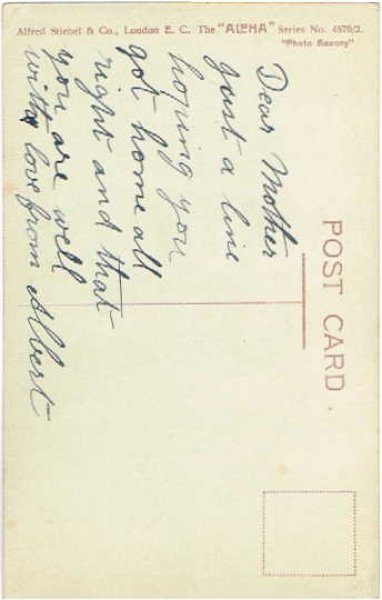 Alfred Stiebel & Co., London E. C. The "ALPHA" Series No. 4570/2.
"Photo Saxony"
POST CARD
Dear Mother
just a line
hoping you
got home all
right and that
you are well
with love from Albert